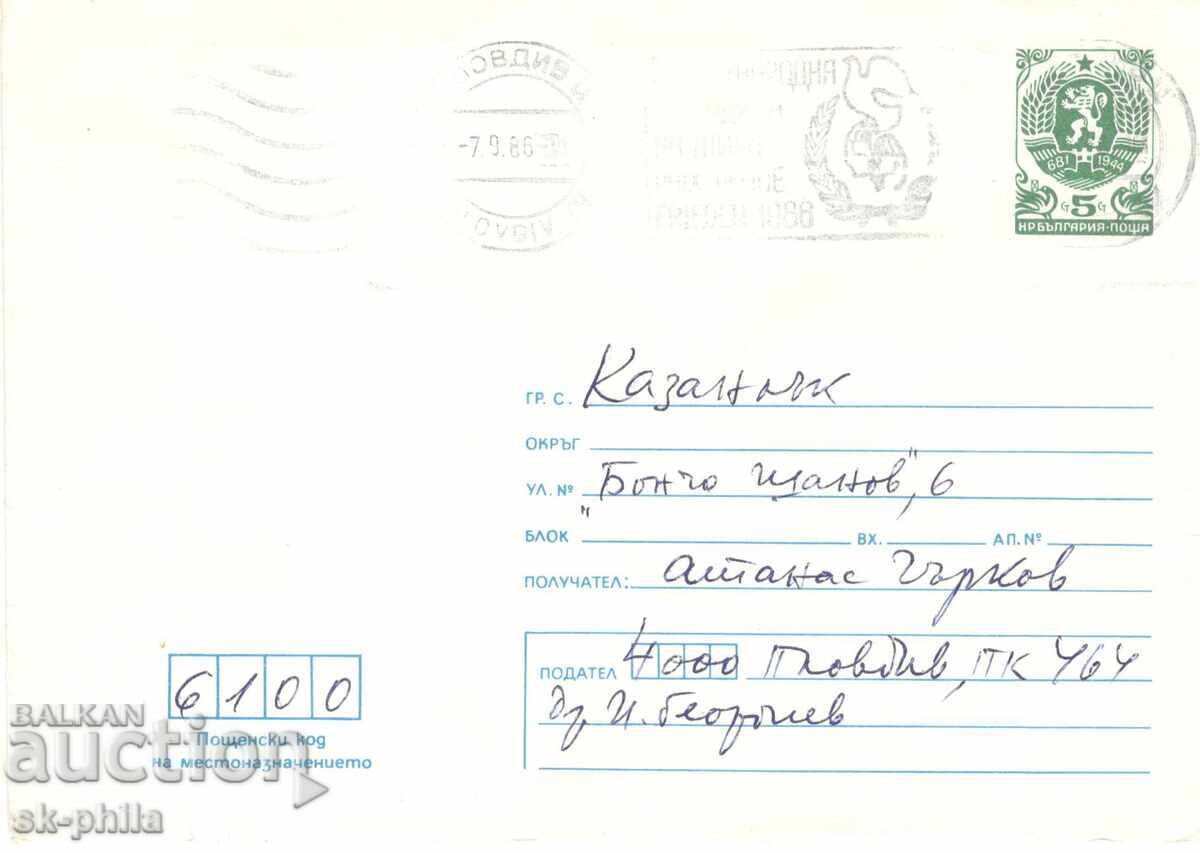 -7.9.86
1986
681 1944
5
НР БЪЛГАРИЯ·ПОЩА
ГР. С. Казанлък
ОКРЪГ
УЛ. № "Бончо Шанов", 6
БЛОК ВХ. АП. №
ПОЛУЧАТЕЛ: Атанас Гърков
ПОДАТЕЛ 4000 Пловдив, ПК 464
И. Георгиев
6100
Пощенски код
на местоназначението
BALKAN
auction
sk-phila